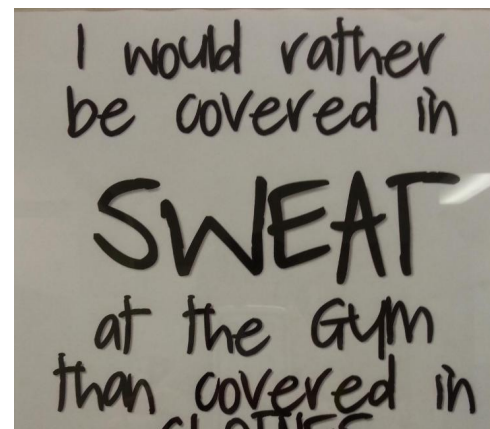 I would rather
be covered in
SWEAT
at the Gym
than covered in
CLOTHES